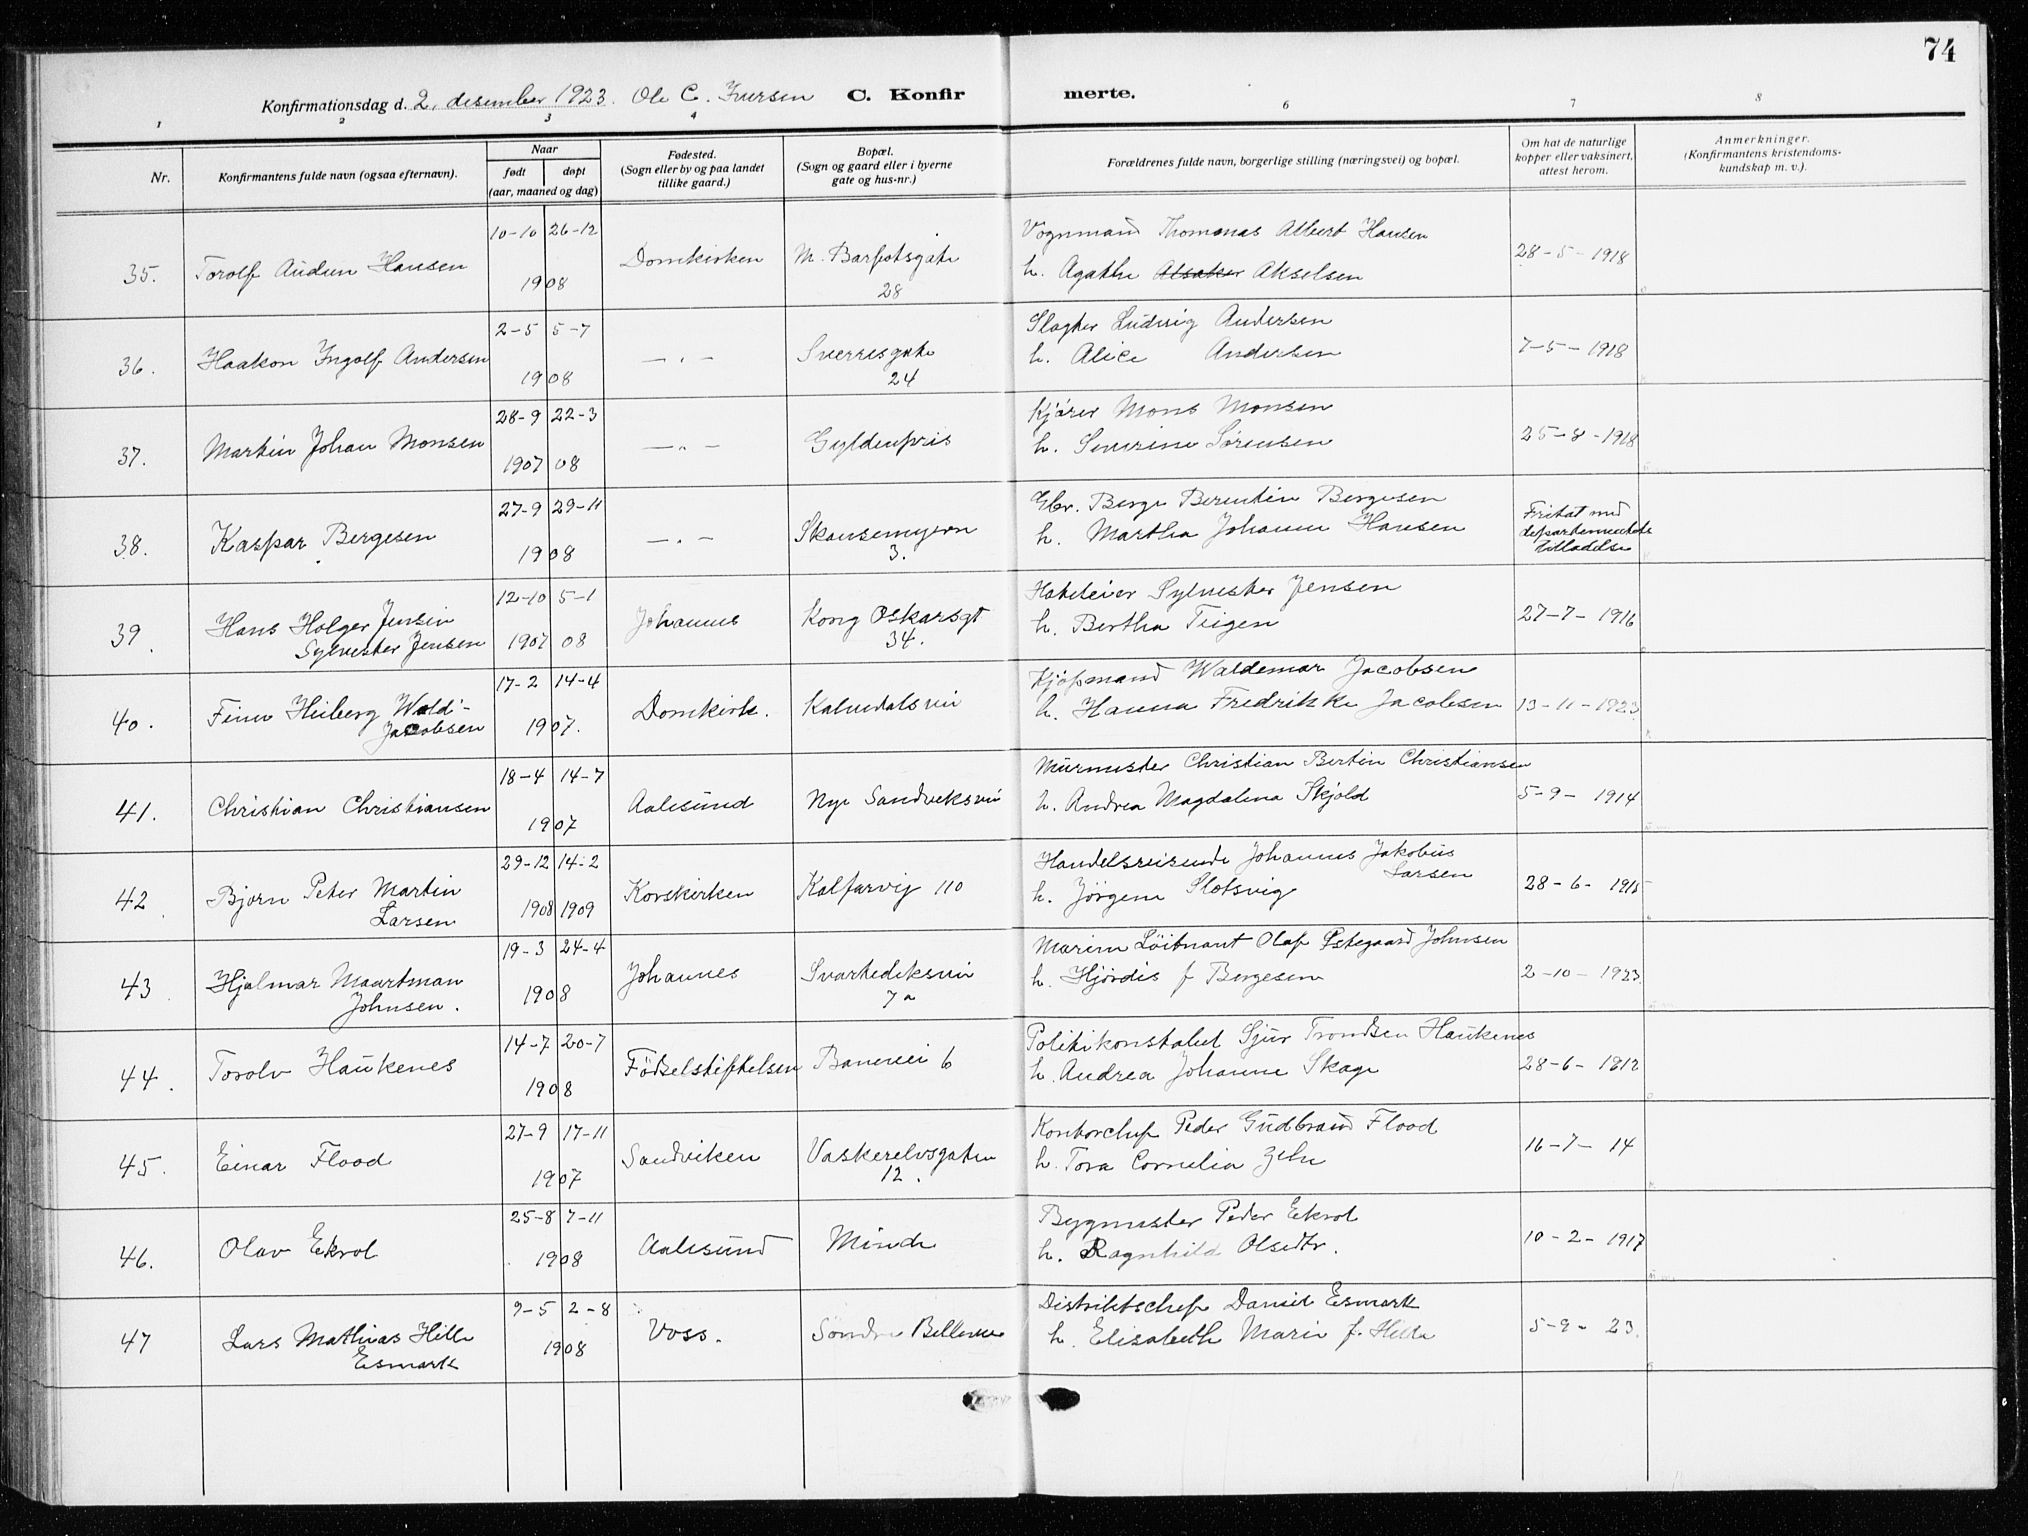 74
Konfirmationsdag d. 2. desember 1923. Ole C. Iversen C. Konfir merte.
1 2 3 4 6 7 8
Nr.
Konfirmantens fulde navn (ogsaa efternavn).
Naar
født døpt
(aar, maaned og dag)
Fødested.
(Sogn eller by og paa landet
tillike gaard.)
Bopæl.
(Sogn og gaard eller i byerne
gate og hus-nr.)
Forældrenes fulde navn, borgerlige stilling (næringsvei) og bopæl.
Om hat de naturlige
kopper eller vaksinert,
attest herom.
Anmerkninger.
(Konfirmantens kristendoms-
kundskap m. v.).
10-10 26-12 Vognmand Thomas Albert Hansen
35. Torolf Audun Hansen Domkirken M. Barfotsgate 28-5-1918
1908 28 h. Agathe Alsaker Akselsen
2-5 5-7 Slagter Ludvig Andersen
36. Haakon Ingolf Andersen — „ — Sverresgate 7-5-1918
1908 24 h. Alice Andersen
28-9 22-3 Kjører Mons Monsen
37. Martin Johan Monsen — „ — Gyldenpris 25-8-1918
1907 08 h. Severine Sørensen
27-9 29-11 Berge Berentin Bergesen Fritat med
38. Kaspar Bergesen — „ — Skansemyern departementets
1908 3. h. Martha Johanne Hansen tilladelse
12-10 5-1 Hoteleier Sylvester Jensen
39. Hans Holger Jensin Johannes Kong Oskarsgt 27-7-1916
Sylvester Jensen 1907 08 34. h. Bertha Teigen
17-2 14-4 Kjøpmand Waldemar Jacobsen
40. Finn Heiberg Wald- Domkirk. Kalvedalsvei 13-11-1923
Jacobsen 1907. h. Hanna Fredrikke Jacobsen
18-4 14-7 Murmester Christian Bertin Christiansen
41. Christian Christiansen Aalesund Nye Sandviksvei 5-9-1914
1907 h. Andrea Magdalena Skjold
29-12 14-2 Handelsreisende Johannes Jakobus
Larsen
42 Bjørn Peter Martin Korskirken Kalfarvej 110 28-6-1915
Larsen 1908 1909 h. Jørgene Slotsvig
19-3 24-4 Marine Løitnant Olaf Østegaard Johnsen
43. Hjalmar Maartman Johannes Svartediksvei 2-10-1923.
Johnsen. 1908 7a h. Hjørdis f Bergesen
14-7 20-7 Politikonstabel Sjur Trondsen Haukenes
44. Torolv Haukenes Fødselstiftelsen Banevei 6 28-6-1912
1908 h. Andrea Johanne Skage
27-9 17-11 Kontorchef Peder Gudbrand Flood
45. Einar Flood Sandviken Vaskerelvsgaten 16-7-14
1907 12. h. Tora Cornelia
25-8 7-11 Bygmester Peder Ekrol
46. Olav Ekrol Aalesund Minde 10-2-1917
1908 h. Ragnhild Olsedtr.
9-5 2-8 Distriktschef Daniel Esmark
47 Lars Mathias Hille Voss. Søndre 5-9-23.
Esmark 1908 h. Elisabeth Marie f. Hille